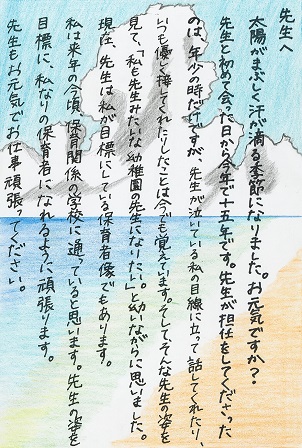 先生へ
太陽がまぶしく、汗が滴る季節になりました。お元気ですか?
先生と初めて会った日から今年で十五年です。先生が担任をしてくださった
のは、年少の時だけですが、先生が泣いている私の目線に立って話してくれたり、
いつも優しく接してくれたりしたことは今でも覚えています。そして、そんな先生の姿を
見て、「私も先生みたいな幼稚園の先生になりたい。」と幼いながらに思いました。
現在、先生は私が目標にしている保育者像でもあります。
私は来年の今頃、保育関係の学校に通っていると思います。先生の姿を
目標に、私なりの保育者になれるように頑張ります。
先生もお元気でお仕事頑張ってください。